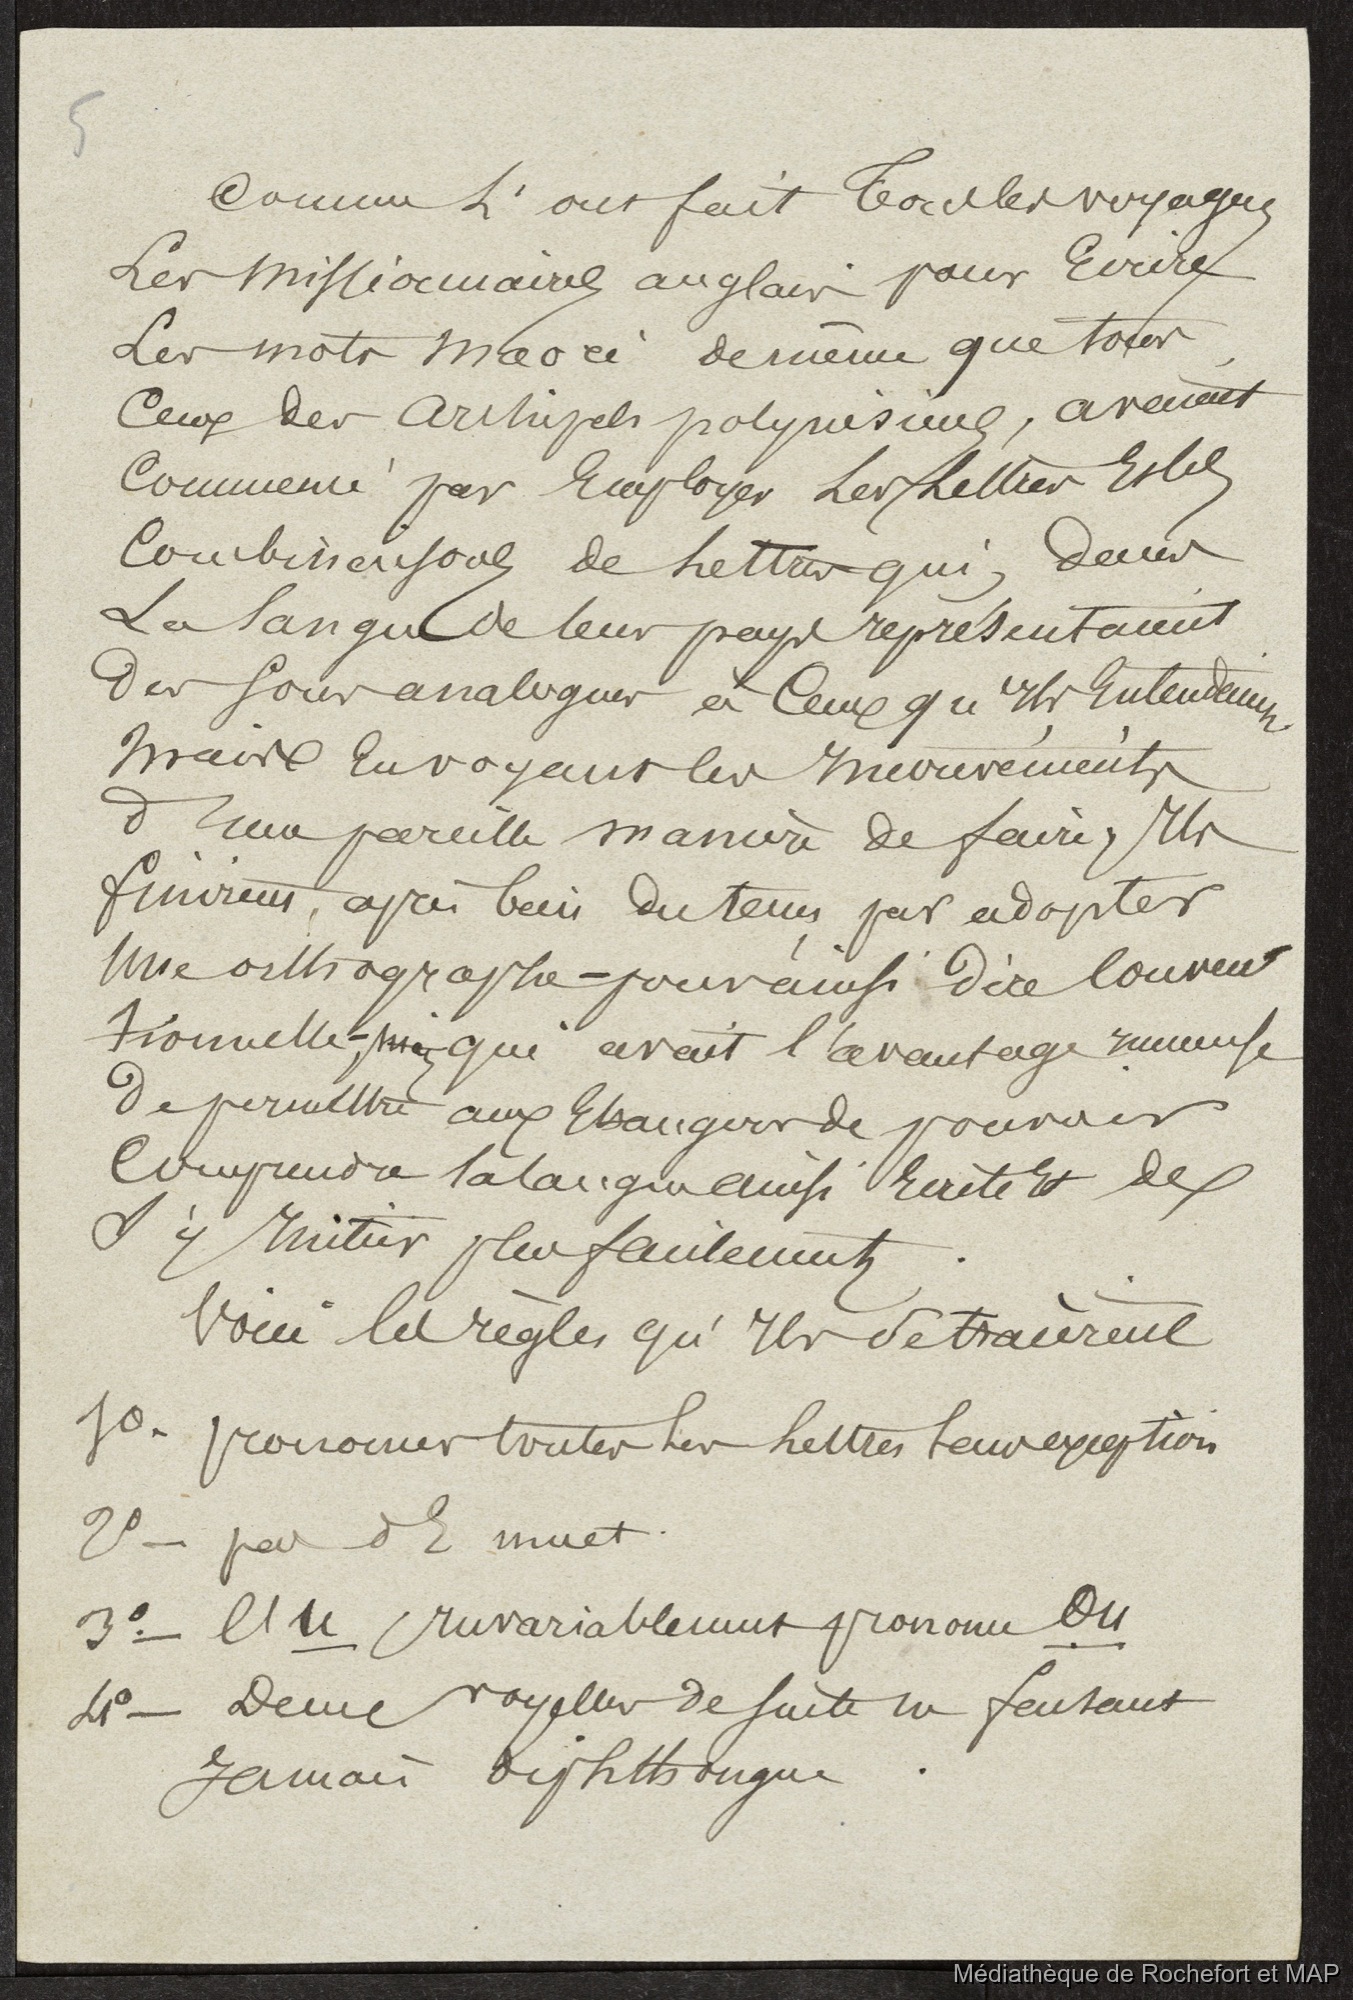 5
Comme l'ont fait Tous les voyages
Les Missionnaires anglais pour Ecrire
Les mots Maori de même que tous
Ceux des Archipels polynésiens, avaient
Commencé par Employer les lettres Et les
Combinaisons de lettres qui, dans
La langue de leur pays représentaient
Des sons analogues à Ceux qu'Ils Entendaient
Mais En voyant les Inconvénients
d'Une pareille manière de faire, Ils
finirent, après bien du tems, par adopter
Une orthographe - pour ainsi dire conven
tionnelle - qui avait l'avantage immense
De permettre aux Etrangers de pouvoir
Comprendre la langue ainsi Ecrite Et de
S'y Initier plus facilement.
Voici les règles qu'Ils se tracèrent
1o. prononcer toutes les lettres sans exception
2o - pas d'E muet.
3o - l'U Invariablement prononcé Ou
4o - Deux voyelles de suite ne faisant
Jamais diphthongue.
Médiathèque de Rochefort et MAP